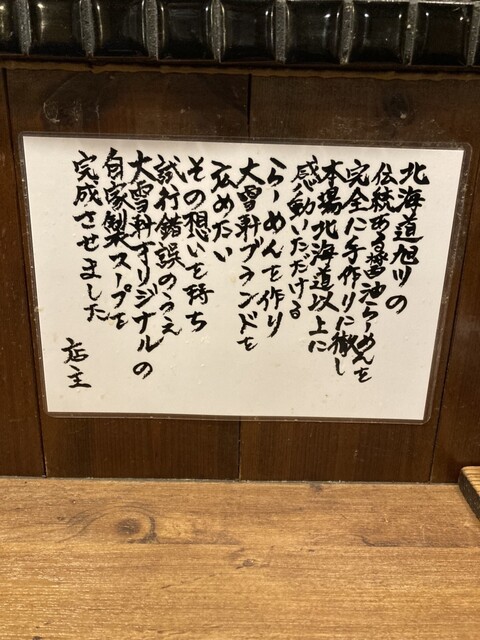 北海道旭川の
伝統ある醤油らーめんを
完全に手作りに徹し
本場北海道以上に
感動いただける
らーめんを作り
大雪軒ブランドを
広めたい
その想いを持ち
試行錯誤のうえ
大雪軒オリジナルの
自家製スープを
完成させました
店主